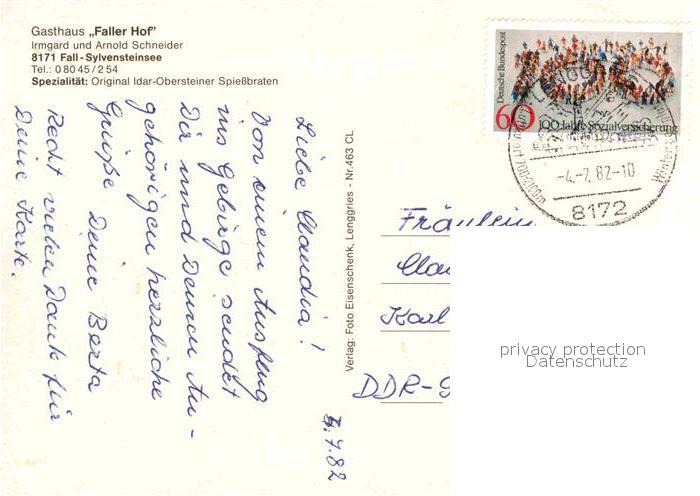 Gasthaus „Faller Hof"
Irmgard und Arnold Schneider
8171 Fall-Sylvensteinsee
Tel.: 0 80 45 / 2 54
Spezialität: Original Idar-Obersteiner Spießbraten
Liebe Claudia!
Von einem Ausflug
ins Gebirge sendet
Dir und Deinen An-
gehörigen herzliche
Grüße Deine Berta
Recht vielen Dank für
Deine Karte.
4.7.82
Verlag: Foto Eisenschenk, Lenggries - Nr. 463 CL
Deutsche Bundespost
60
100 Jahre Sozialversicherung
LENGGRIES
-4.-7.82-10
8172
700-1700m
Fräulein
Clau
Karl
DDR-9
privacy protection
Datenschutz